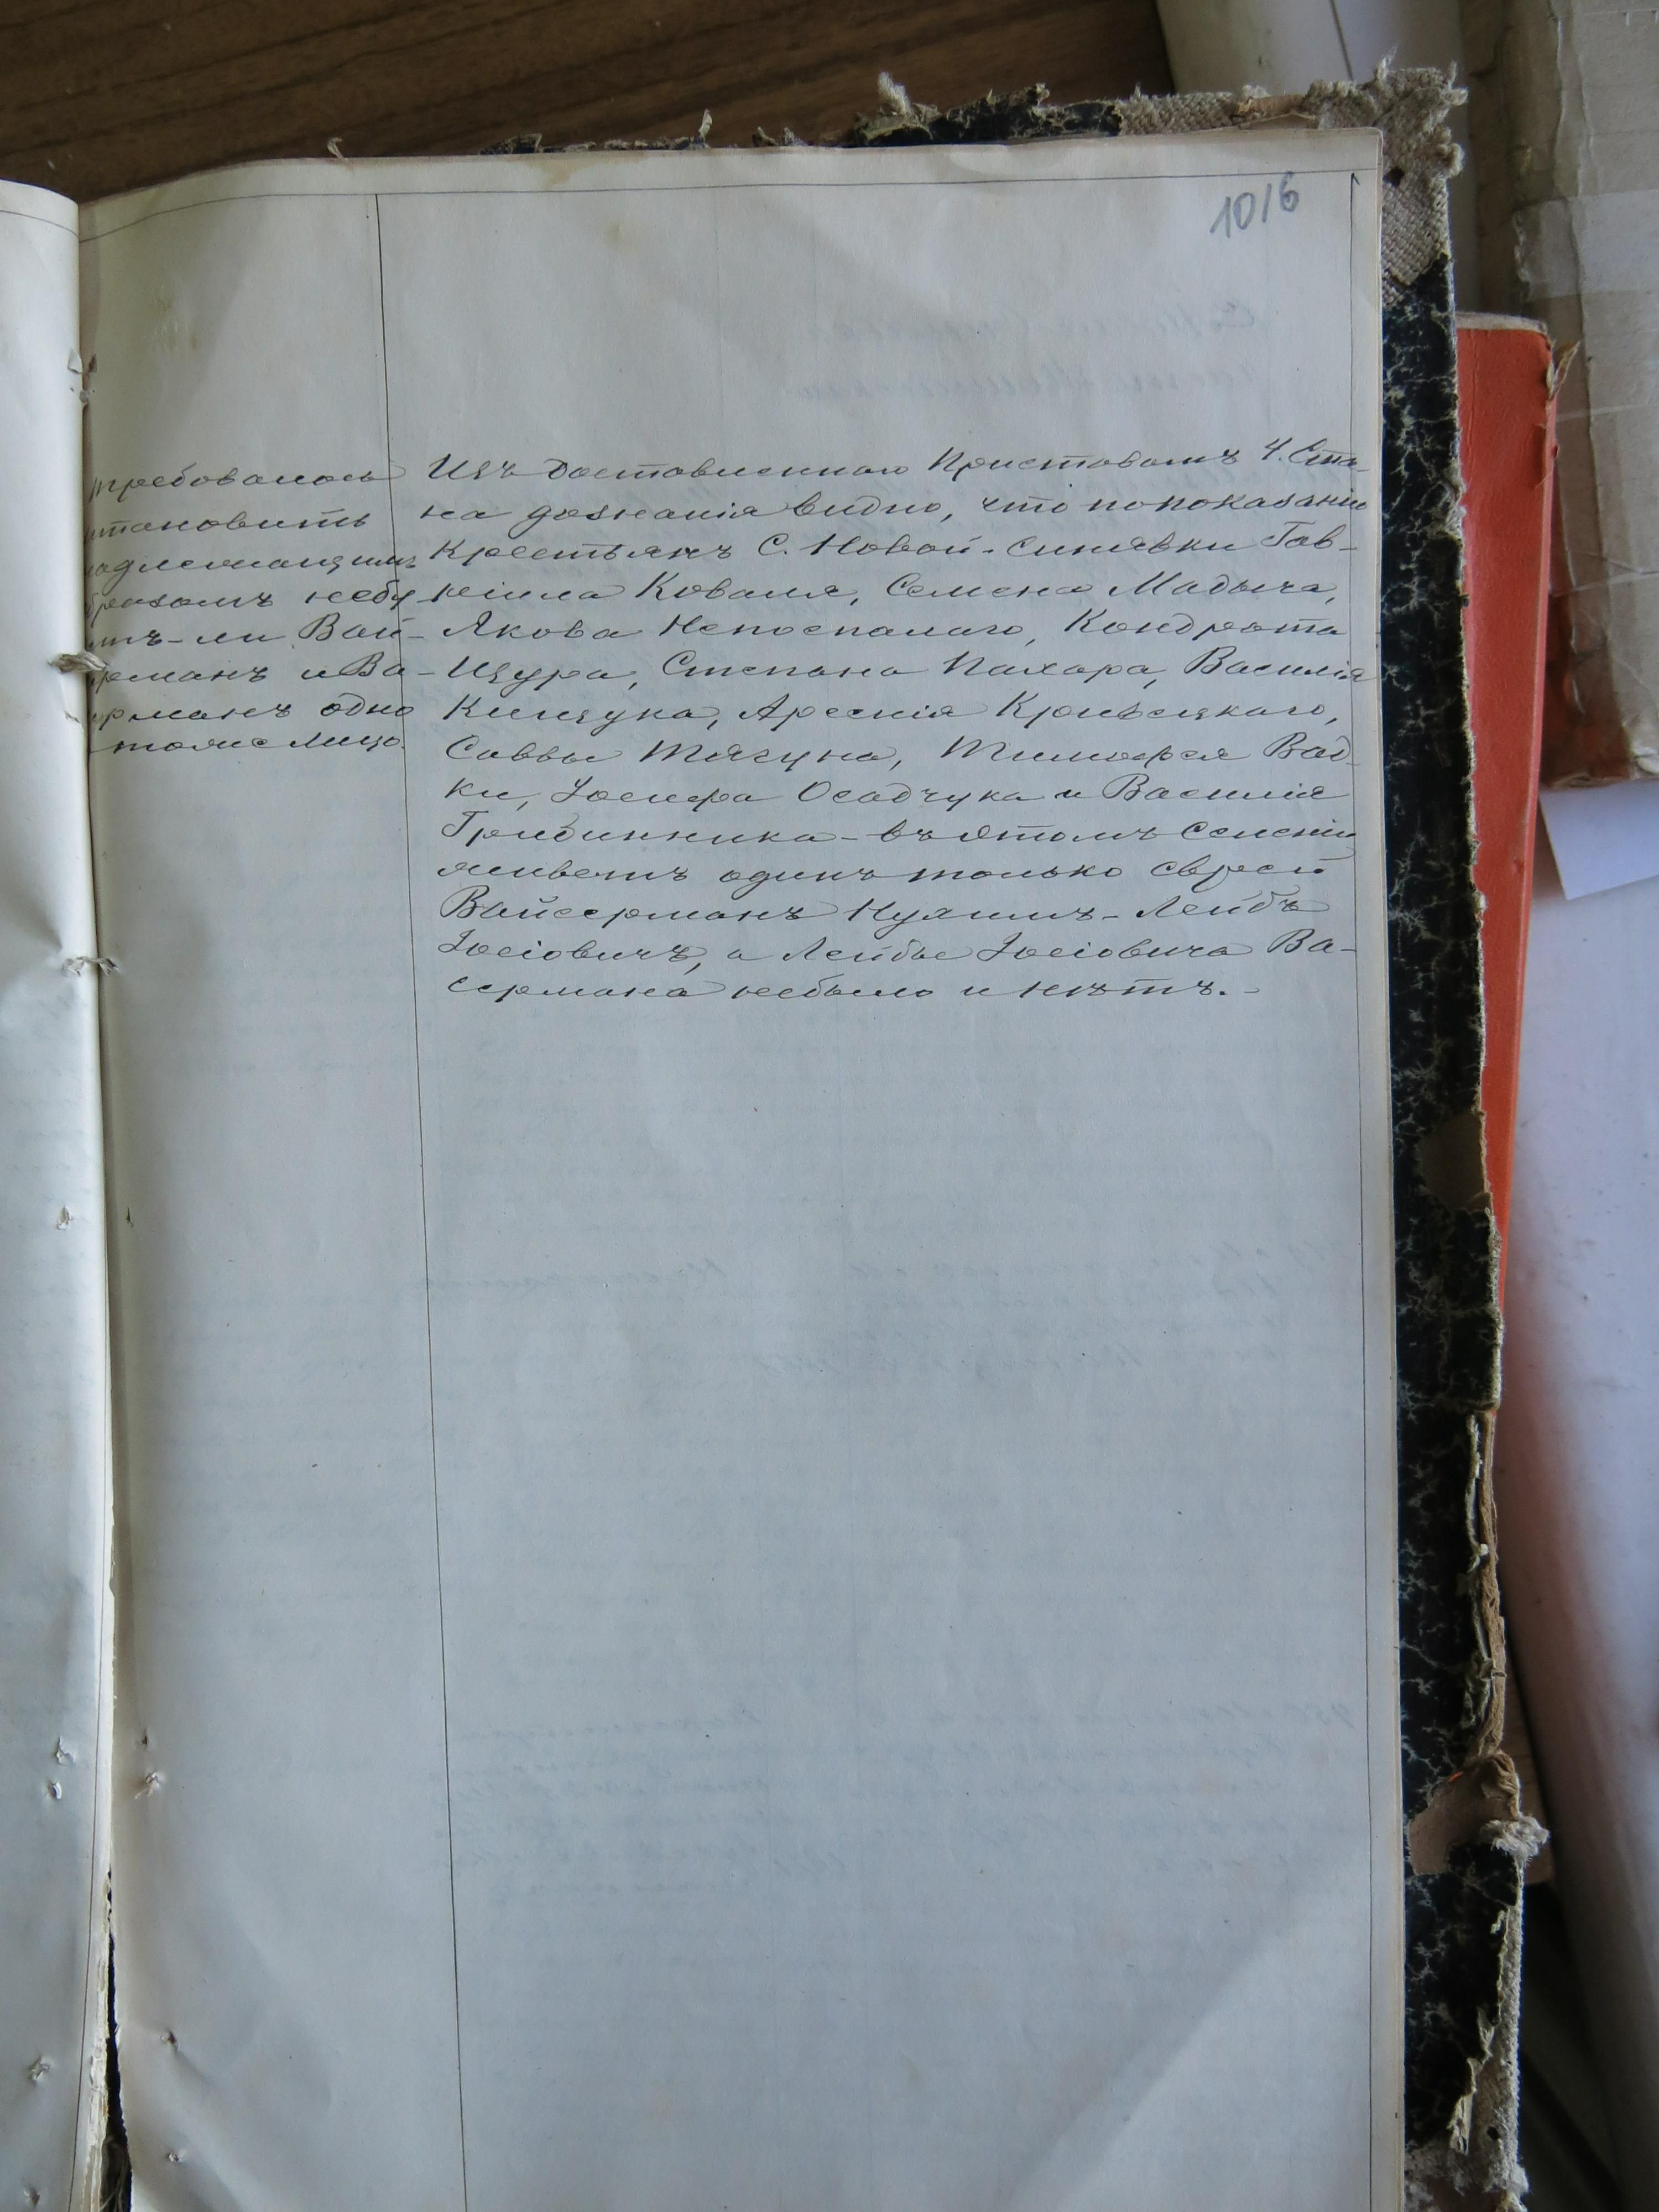 1016
требовалось
становить
надлежащимъ
бразомъ небу
тъ-ли Вай-
серманъ и Ва-
ерманъ одно
тоже лицо.
Изъ доставленнаго Приставомъ 4. Ста-
на дознанія видно, что по показанію
Крестьянъ С. Новой-Синявки Гав-
ріила Коваля, Семена Мадыча,
Якова Непоспалаго, Кондрата
Щура, Степана Пахара, Василія
Кищука, Арсенія Кривецкаго,
Саввы Тягуна, Тимофея Вод-
ки, Іосифа Осадчука и Василія
Грибинника - въ этомъ селеніи
живетъ одинъ только еврей
Вайсерманъ Нухимъ-Лейбъ
Іосіовичъ, а Лейбы Іосіовича Ва-
сермана небыло и нѣтъ. -